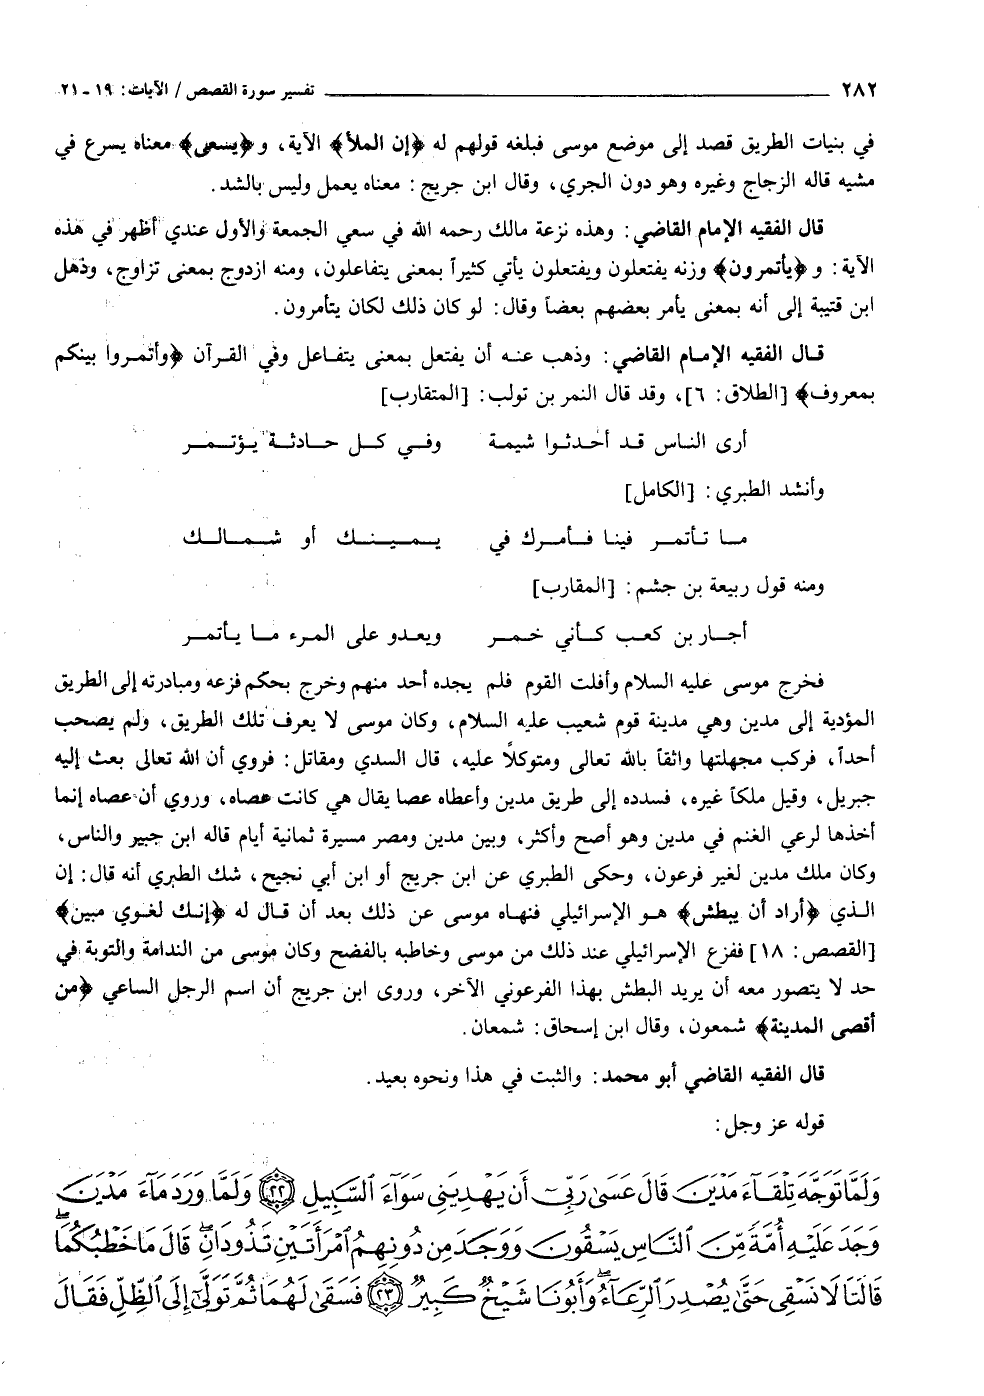 ٢٨٢ ــــــــــــــــــــ تفسير سورة القصص / الآيات: ١٩ ـ ٢١
في بنيات الطريق قصد إلى موضع موسى فبلغه قولهم له ﴿إن الملأ﴾ الآية، و ﴿يسعى﴾ معناه يسرع في
مشيه قاله الزجاج وغيره وهو دون الجري، وقال ابن جريج: معناه يعمل وليس بالشد.
قال الفقيه الإمام القاضي: وهذه نزعة مالك رحمه الله في سعي الجمعة والأول عندي أظهر في هذه
الآية: و ﴿يأتمرون﴾ وزنه يفتعلون ويفتعلون يأتي كثيراً بمعنى يتفاعلون، ومنه ازدوج بمعنى تزاوج، وذهل
ابن قتيبة إلى أنه بمعنى يأمر بعضهم بعضاً وقال: لو كان ذلك لكان يتأمرون.
قال الفقيه الإمام القاضي: وذهب عنه أن يفتعل بمعنى يتفاعل وفي القرآن ﴿وأتمروا بينكم
بمعروف﴾ [الطلاق: ٦]، وقد قال النمر بن تولب: [المتقارب]
أرى الناس قد أحدثوا شيمة وفي كل حادثة يؤتمر
وأنشد الطبري: [الكامل]
ما تأتمر فينا فأمرك في يمينك أو شمالك
ومنه قول ربيعة بن جشم: [المقارب]
أجار بن كعب كأني خمر ويعدو على المرء ما يأتمر
فخرج موسى عليه السلام وأفلت القوم فلم يجده أحد منهم وخرج بحكم فزعه ومبادرته إلى الطريق
المؤدية إلى مدين وهي مدينة قوم شعيب عليه السلام، وكان موسى لا يعرف تلك الطريق، ولم يصحب
أحداً، فركب مجهلتها واثقاً بالله تعالى ومتوكلاً عليه، قال السدي ومقاتل: فروي أن الله تعالى بعث إليه
جبريل، وقيل ملكاً غيره، فسدده إلى طريق مدين وأعطاه عصا يقال هي كانت عصاه، وروي أن عصاه إنما
أخذها لرعي الغنم في مدين وهو أصح وأكثر، وبين مدين ومصر مسيرة ثمانية أيام قاله ابن جبير والناس،
وكان ملك مدين لغير فرعون، وحكى الطبري عن ابن جريج أو ابن أبي نجيح، شك الطبري أنه قال: إن
الذي ﴿أراد أن يبطش﴾ هو الإسرائيلي فنهاه موسى عن ذلك بعد أن قال له ﴿إنك لغوي مبين﴾
[القصص: ١٨] ففزع الإسرائيلي عند ذلك من موسى وخاطبه بالفضح وكان موسى من الندامة والتوبة في
حد لا يتصور معه أن يريد البطش بهذا الفرعوني الآخر، وروى ابن جريج أن اسم الرجل الساعي ﴿من
أقصى المدينة﴾ شمعون، وقال ابن إسحاق: شمعان.
قال الفقيه القاضي أبو محمد: والثبت في هذا ونحوه بعيد.
قوله عز وجل:
وَلَمَّا تَوَجَّهَ تِلْقَآءَ مَدْيَنَ قَالَ عَسَىٰ رَبِّىٓ أَن يَهْدِيَنِى سَوَآءَ ٱلسَّبِيلِ ﴿٢٢﴾ وَلَمَّا وَرَدَ مَآءَ مَدْيَنَ
وَجَدَ عَلَيْهِ أُمَّةً مِّنَ ٱلنَّاسِ يَسْقُونَ وَوَجَدَ مِن دُونِهِمُ ٱمْرَأَتَيْنِ تَذُودَانِ ۖ قَالَ مَا خَطْبُكُمَا ۖ
قَالَتَا لَا نَسْقِى حَتَّىٰ يُصْدِرَ ٱلرِّعَآءُ ۖ وَأَبُونَا شَيْخٌ كَبِيرٌ ﴿٢٣﴾ فَسَقَىٰ لَهُمَا ثُمَّ تَوَلَّىٰٓ إِلَى ٱلظِّلِّ فَقَالَ